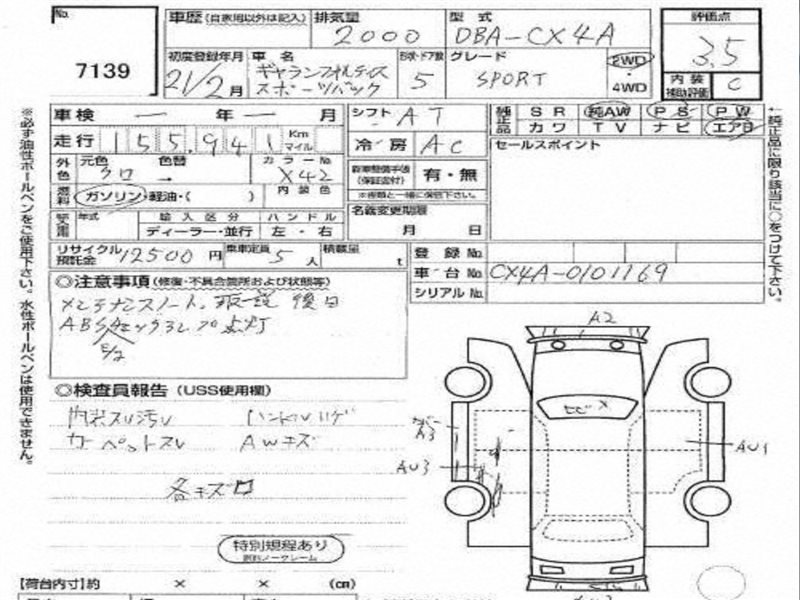 No.
7139
車歴(自家用以外は記入) 排気量 2000 型式 DBA-CX4A
評価点 3.5
内装補助評価 C
初度登録年月 21/2月 車名 ギャランフォルティス スポーツバック 形状・ドア数 5 グレード SPORT 2WD・4WD
車検 ー 年 ー 月 シフト AT
純正品 SR 純AW PS PW
カワ TV ナビ エアB
走行 155,941 Km マイル 冷房 AC
セールスポイント
外色 元色 クロ 色替 ー カラーNo. X42 内装色
有・無
燃料 ガソリン・軽油・( )
輸入車 年式 輸入区分 ディーラー・並行 ハンドル 左・右
名義変更期限 月 日
リサイクル預託金 12500円 乗車定員 5人 積載量 t
登録No.
車台No. CX4A-0101169
シリアルNo.
◎注意事項(修復・不具合箇所および状態等)
メンテナンスノート、取説 後日
ABSチェックランプ点灯
◎検査員報告(USS使用欄)
内装スレ汚レ ハンドルハゲ
カーペットスレ AWキズ
各キズ凹
特別規程あり
A2
ヒビ×
A3
AU3
AU1
【荷台内寸】約 × × (cm)
※必ず油性ボールペンをご使用下さい。水性ボールペンは使用できません。
←純正品に限り該当に○をつけて下さい。